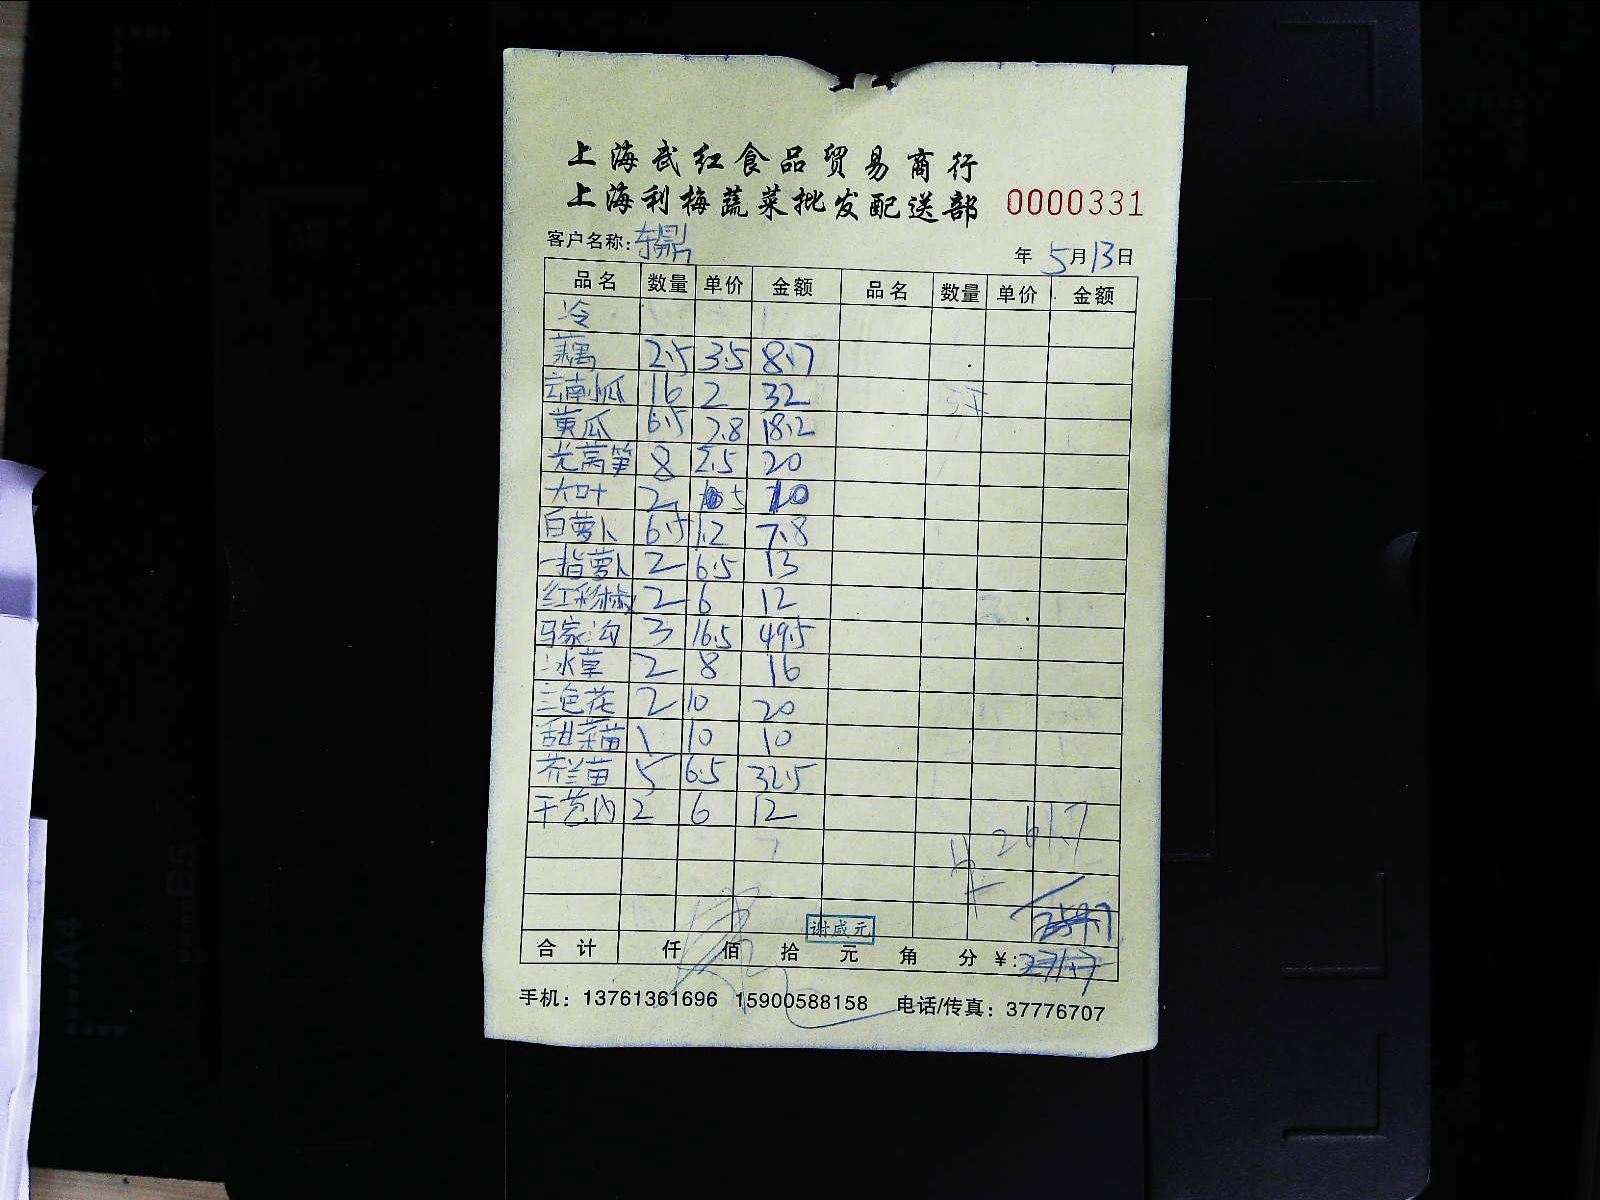 上海武红食品贸易商行
上海利梅蔬菜批发配送部 0000331
客户名称: 东鼎 年 5月13日
品名 数量 单价 金额 品名 数量 单价 金额
冷
藕 2.5 3.5 8.7
云南小瓜 16 2 32
黄瓜 6.5 2.8 18.2
光莴笋 8 2.5 20
大叶 2 5 10
白萝卜 6.5 1.2 7.8
一指萝卜 2 6.5 13
红彩椒 2 6 12
马家沟 3 16.5 49.5
冰草 2 8 16
三色花 2 10 20
甜菜苗 1 10 10
芥兰苗 5 6.5 32.5
干葱肉 2 6 12
261.7
谢咸元
合计 仟 佰 拾 元 角 分 ¥:
手机: 13761361696 15900588158 电话/传真: 37776707